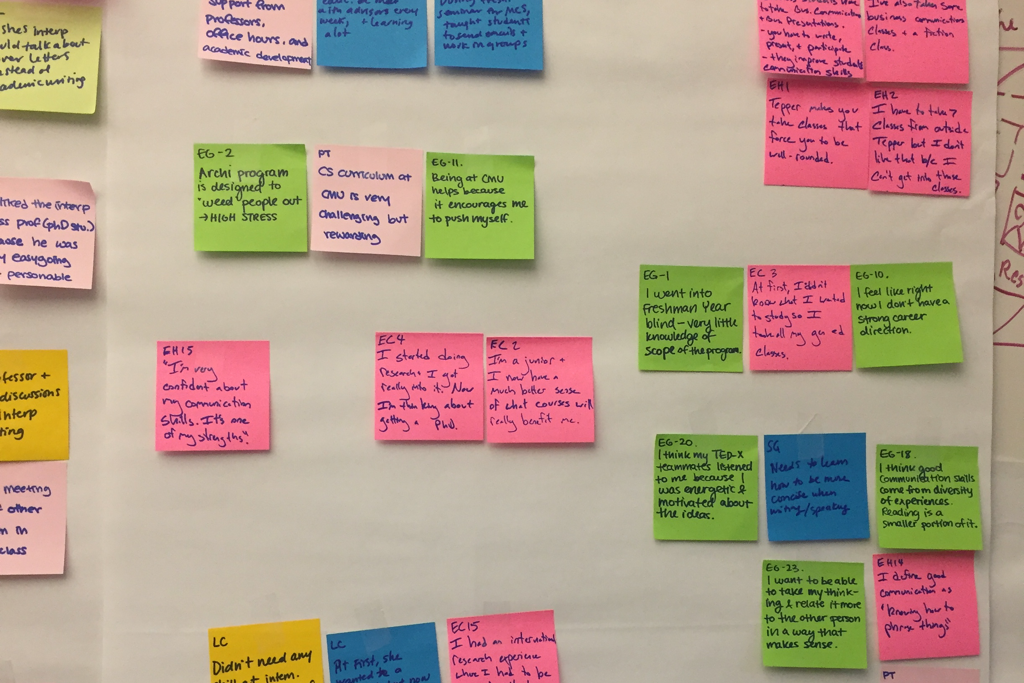 shes Interp
uld talk about
ver letters
stead of
ademic writing
support from
professors,
office hours, and
academic development
advisors every
week, + learning
a lot
seminar for MCS,
taught students
to send emails +
work in groups
Bus. Communications
+ Bus Presentations.
- you have to write,
present, + participate
- then improve students
communication skills
I've also taken some
business communications
classes + a fiction
class.
EH1
Tepper makes you
take classes that
force you to be
well-rounded.
EH2
I have to take 7
classes from outside
Tepper but I don't
like that b/c I
can't get into those
classes.
EG-2
Archi program
is designed to
"weed people out
→ HIGH STRESS
PT
CS curriculum at
CMU is very
challenging but
rewarding
EG-11.
Being at CMU
helps because
it encourages me
to push myself.
liked the interp
ss prof (phD stu.)
ause he was
y easygoing
personable
EG-1
I went into
Freshman Year
blind - very little
knowledge of
scope of the program.
EC 3
At first, I didn't
know what I wanted
to study so I
took all my gen ed
classes.
EG-10.
I feel like right
now I don't have a
strong career
direction.
Res
EH15
"I'm very
confident about
my communication
skills. It's one
of my strengths"
EC4
I started doing
research + I got
really into it. Now
I'm thinking about
getting a PhD.
EC 2
I'm a junior +
I now have a
much better sense
of what courses will
really benefit me.
fessor +
discussions
Interp
ting
meeting
other
m in
class
EG-20.
I think my TED-X
teammates listened
to me because I
was energetic &
motivated about
the ideas.
SG
Needs to learn
how to be more
concise when
writing/speaking
EG-18.
I think good
communication skills
come from diversity
of experiences.
Reading is a
smaller portion of it.
EG-23.
I want to be able
to take my think-
ing & relate it more
to the other person
in a way that
makes sense.
EH14
I define good
communication as
"knowing how to
phrase things"
LC
Didn't need any
skill at intern.
LC
At First, she
wanted to a
EC15
I had an international
research experience
where I had to be
PT